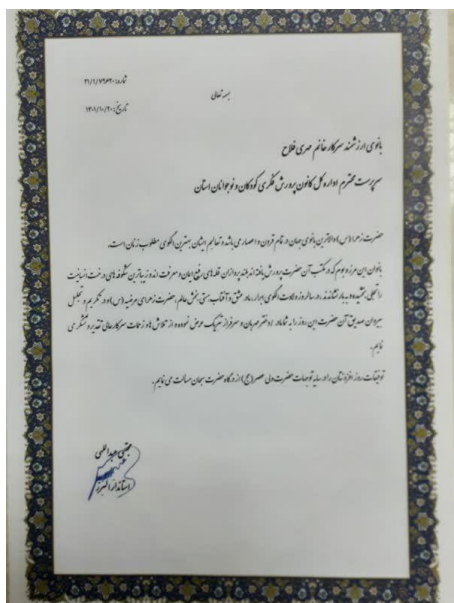 شماره: ۲۱/۱/۷۹۶۲۰
بسمه تعالی
تاریخ: ۱۴۰۱/۱۰/۲۰
بانوی ارزشمند سرکار خانم مهری فلاح
سرپرست محترم اداره کل کانون پرورش فکری کودکان و نوجوانان استان
حضرت زهرا(س) والاترین بانوی جهان در تمام قرون و اعصار می باشد و تعالیم ایشان بهترین الگوی مطلوب زنان است.
بانوان این مرز و بوم که در مکتب آن حضرت پرورش یافته اند بلند پردازان قله های رفیع ایمان و معرفت اند و زیباترین شکوفه های درخت انسانیت
را تجلی بخشیده و به بار نشاندند. در سالروز ولادت الگوی ابرار، مادر عشق و آفتاب هستی بخش عالم، حضرت زهرای مرضیه (س) و در تکریم و تجلیل
پیروان صدیق آن حضرت این روز را به شما مادر / دختر مهربان و سرفراز تبریک عرض نموده و از تلاش ها و زحمات سرکارعالی تقدیر و تشکر می
نمایم.
توفیقات روز افزونتان را در سایه توجهات حضرت ولی عصر(عج) از درگاه حضرت سبحان مسالت می نمایم.
مجتبی عبداللهی
استاندار البرز